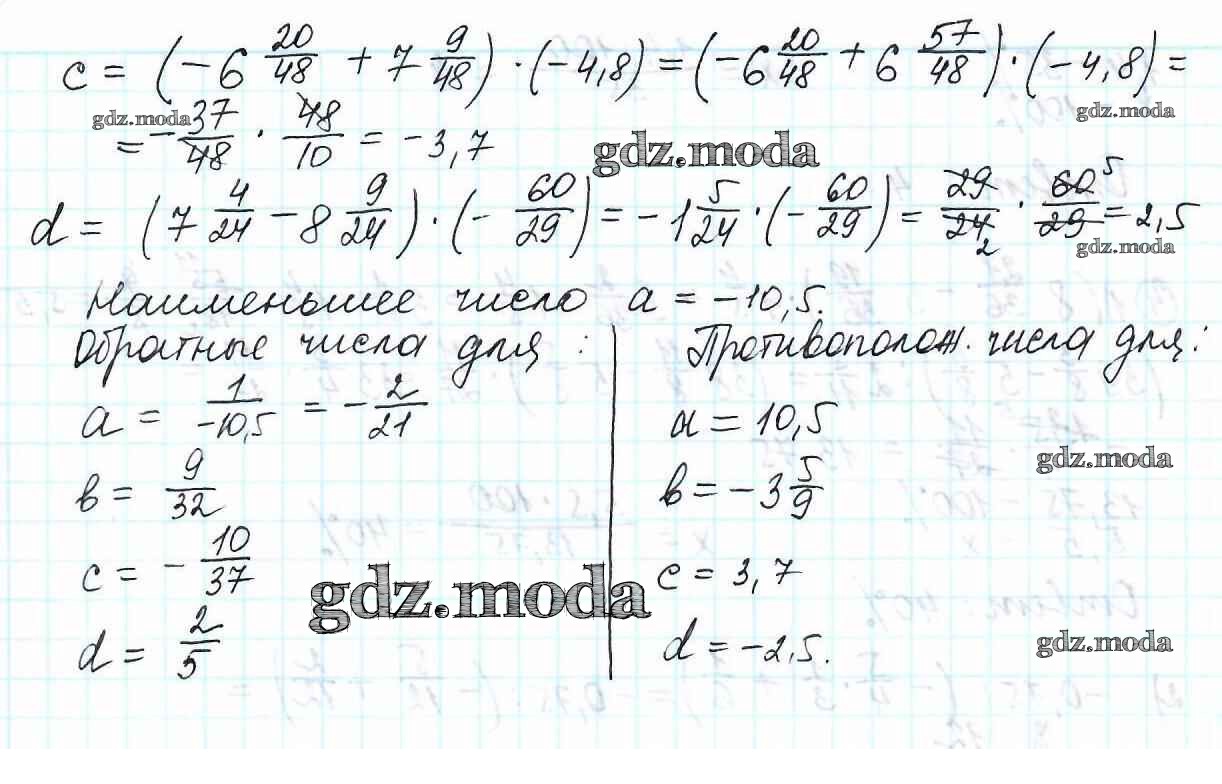 c = (-6 20/48 + 7 9/48) · (-4,8) = (-6 20/48 + 6 57/48) · (-4,8) =
gdz.moda
gdz.moda
= -37/48 · 48/10 = -3,7
gdz.moda
d = (7 4/24 - 8 9/24) · (- 60/29) = -1 5/24 · (- 60/29) = 29/24 2 · 60 5/29 = 2,5
gdz.moda
Наименьшее число a = -10,5.
Обратные числа для :
a = 1/-10,5 = -2/21
в = 9/32
c = - 10/37
d = 2/5
gdz.moda
Противополож. числа для:
a = 10,5
gdz.moda
в = -3 5/9
c = 3,7
d = -2,5.
gdz.moda